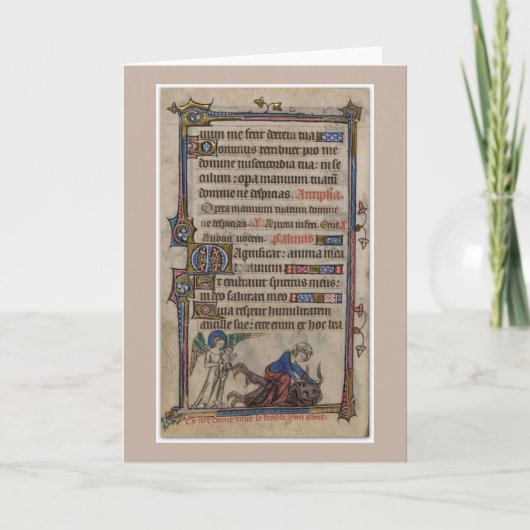 uum me fecit dextera tua
Dominus retribuet pro me
domine misericordia tua: in se
culum: opera manuum tuarū
domine ne despicias. Antipha
Opera manuum tuarum domine
ne despicias. A porta inferi. Erue
Audiui uocem. psalmus
Magnificat: anima mea
Et exultauit spiritus meus:
in deo salutari meo
Quia respexit humilitatem
ancille sue: ecce enim ex hoc bea
dame le deable